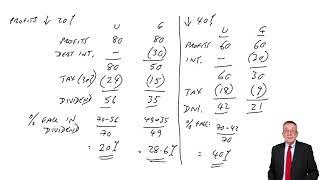 PROFITS ↓ 20%
U G
PROFITS 80 80
DEBT INT. — (30)
80 50
TAX (30%) (24) (15)
DIVIDEND 56 35
% FALL IN DIVIDEND 70-56 / 70 49-35 / 49
= 20% = 28.6%
↓ 40%
U G
PROFITS 60 60
INT. — (30)
60 30
TAX (18) (9)
DIV. 42 21
% FALL: 70-42 / 70
= 40%